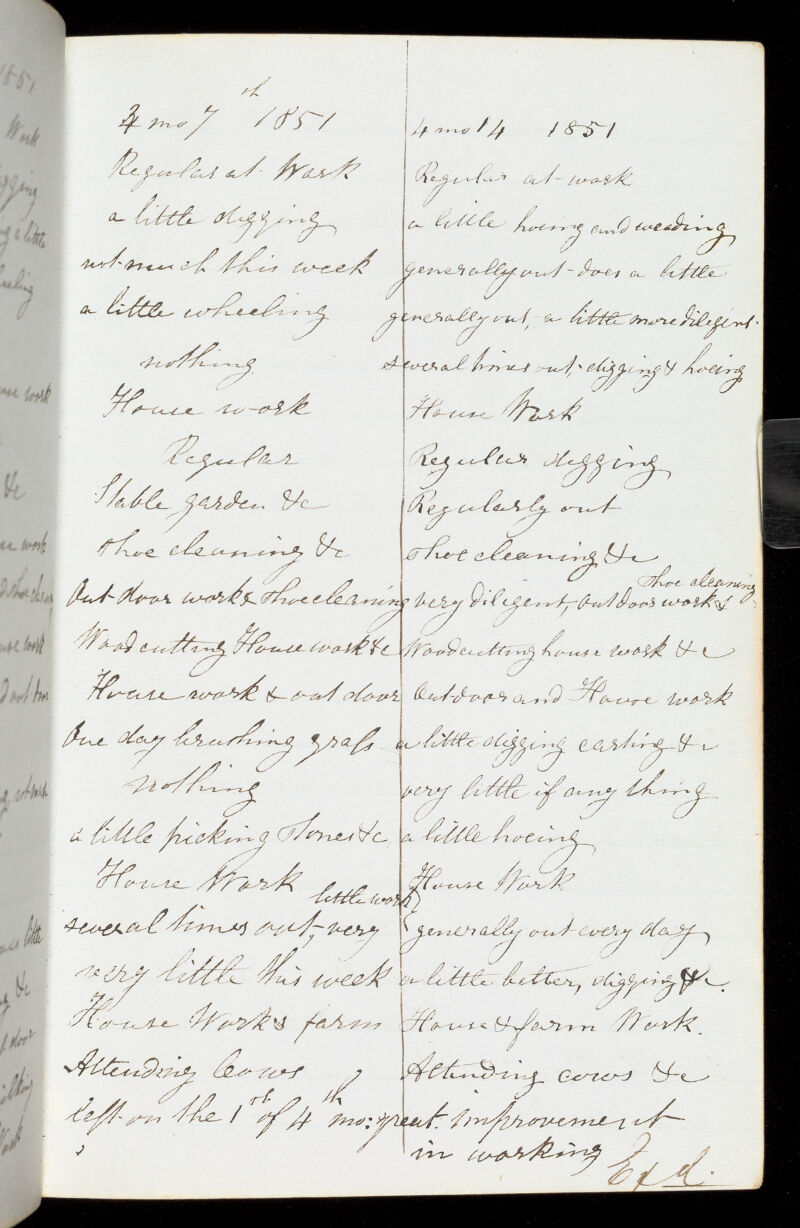 4 mo 7th 1851
Regular at Work
a little digging
not much this week
a little wheeling
nothing
House work
Regular
Stable garden &c
Shoe cleaning &c
Out door work & Shoe cleaning
Wood cutting House work &c
House work & out door
One day brushing grass
nothing
a little picking stones &c
House Work
several times out, very little work
very little this week
House Work & farm
Attending Cows
left on the 1st of 4th mo: great improvement
in working
4 mo 14 1851
Regular at work
a little hoeing and weeding
generally out does a little
generally out, a little more diligent
several times out, digging & hoeing
House Work
Regular digging
Regularly out
Shoe cleaning &c
very diligent, out door work & Shoe cleaning
Wood cutting house work &c
Outdoor and House work
a little digging carting &c
very little if any thing
a little hoeing
House Work
generally out every day
a little better, digging &c.
House & farm Work.
Attending cows &c
Exd.
1851
Work
digging
a little
wheeling
work
&c
work
work
little
&c
door
Work